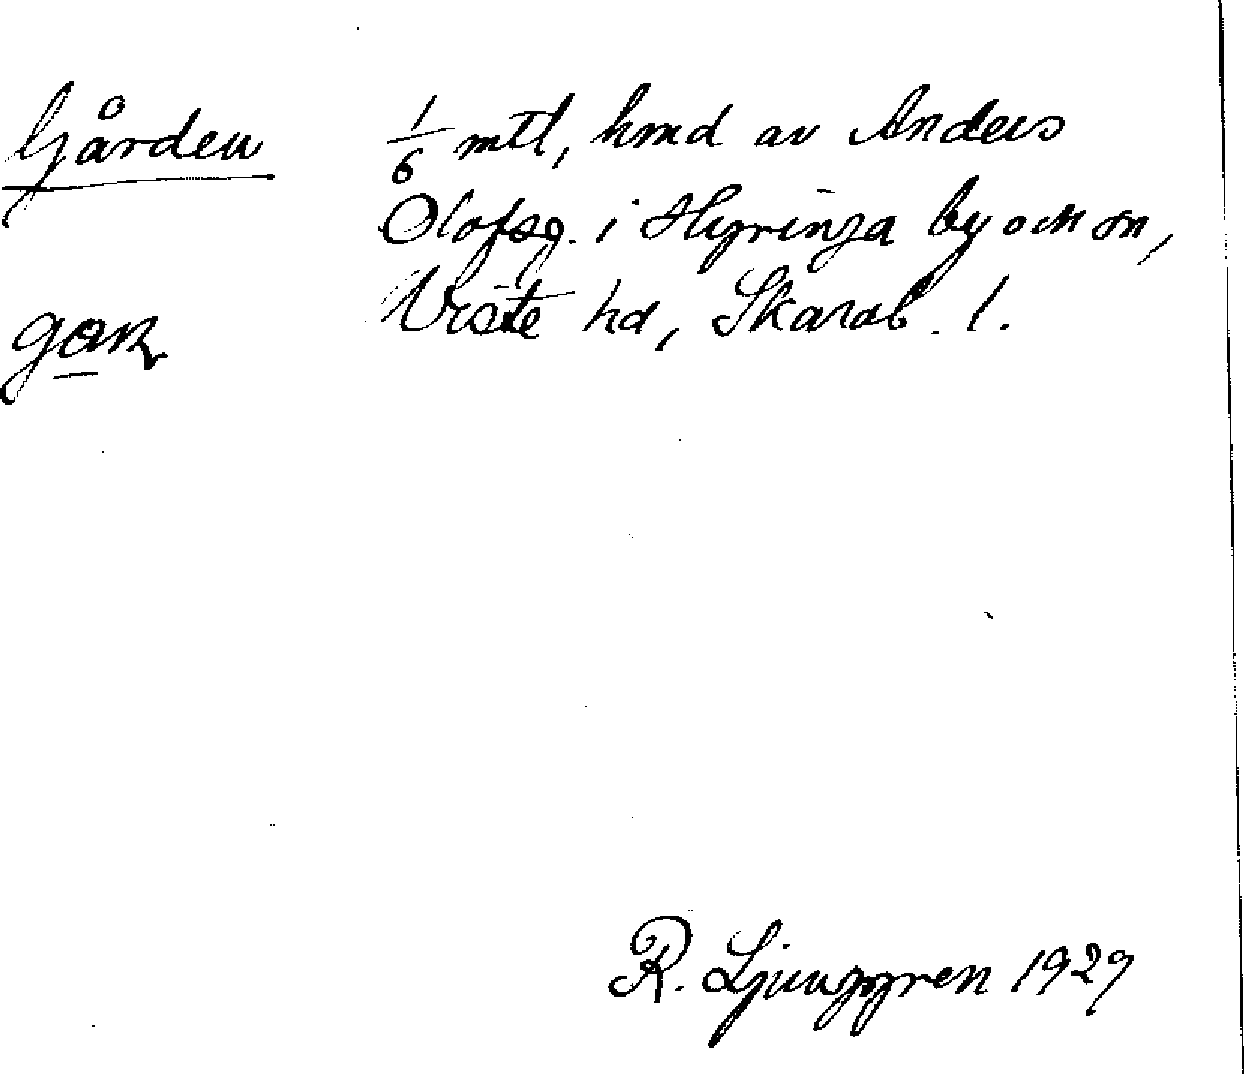 Gården 1/6 mtl, hmd av Anders
Olofsg. i Hyringa by och sn,
Viste hd, Skarab. l.
R. Ljunggren 1929